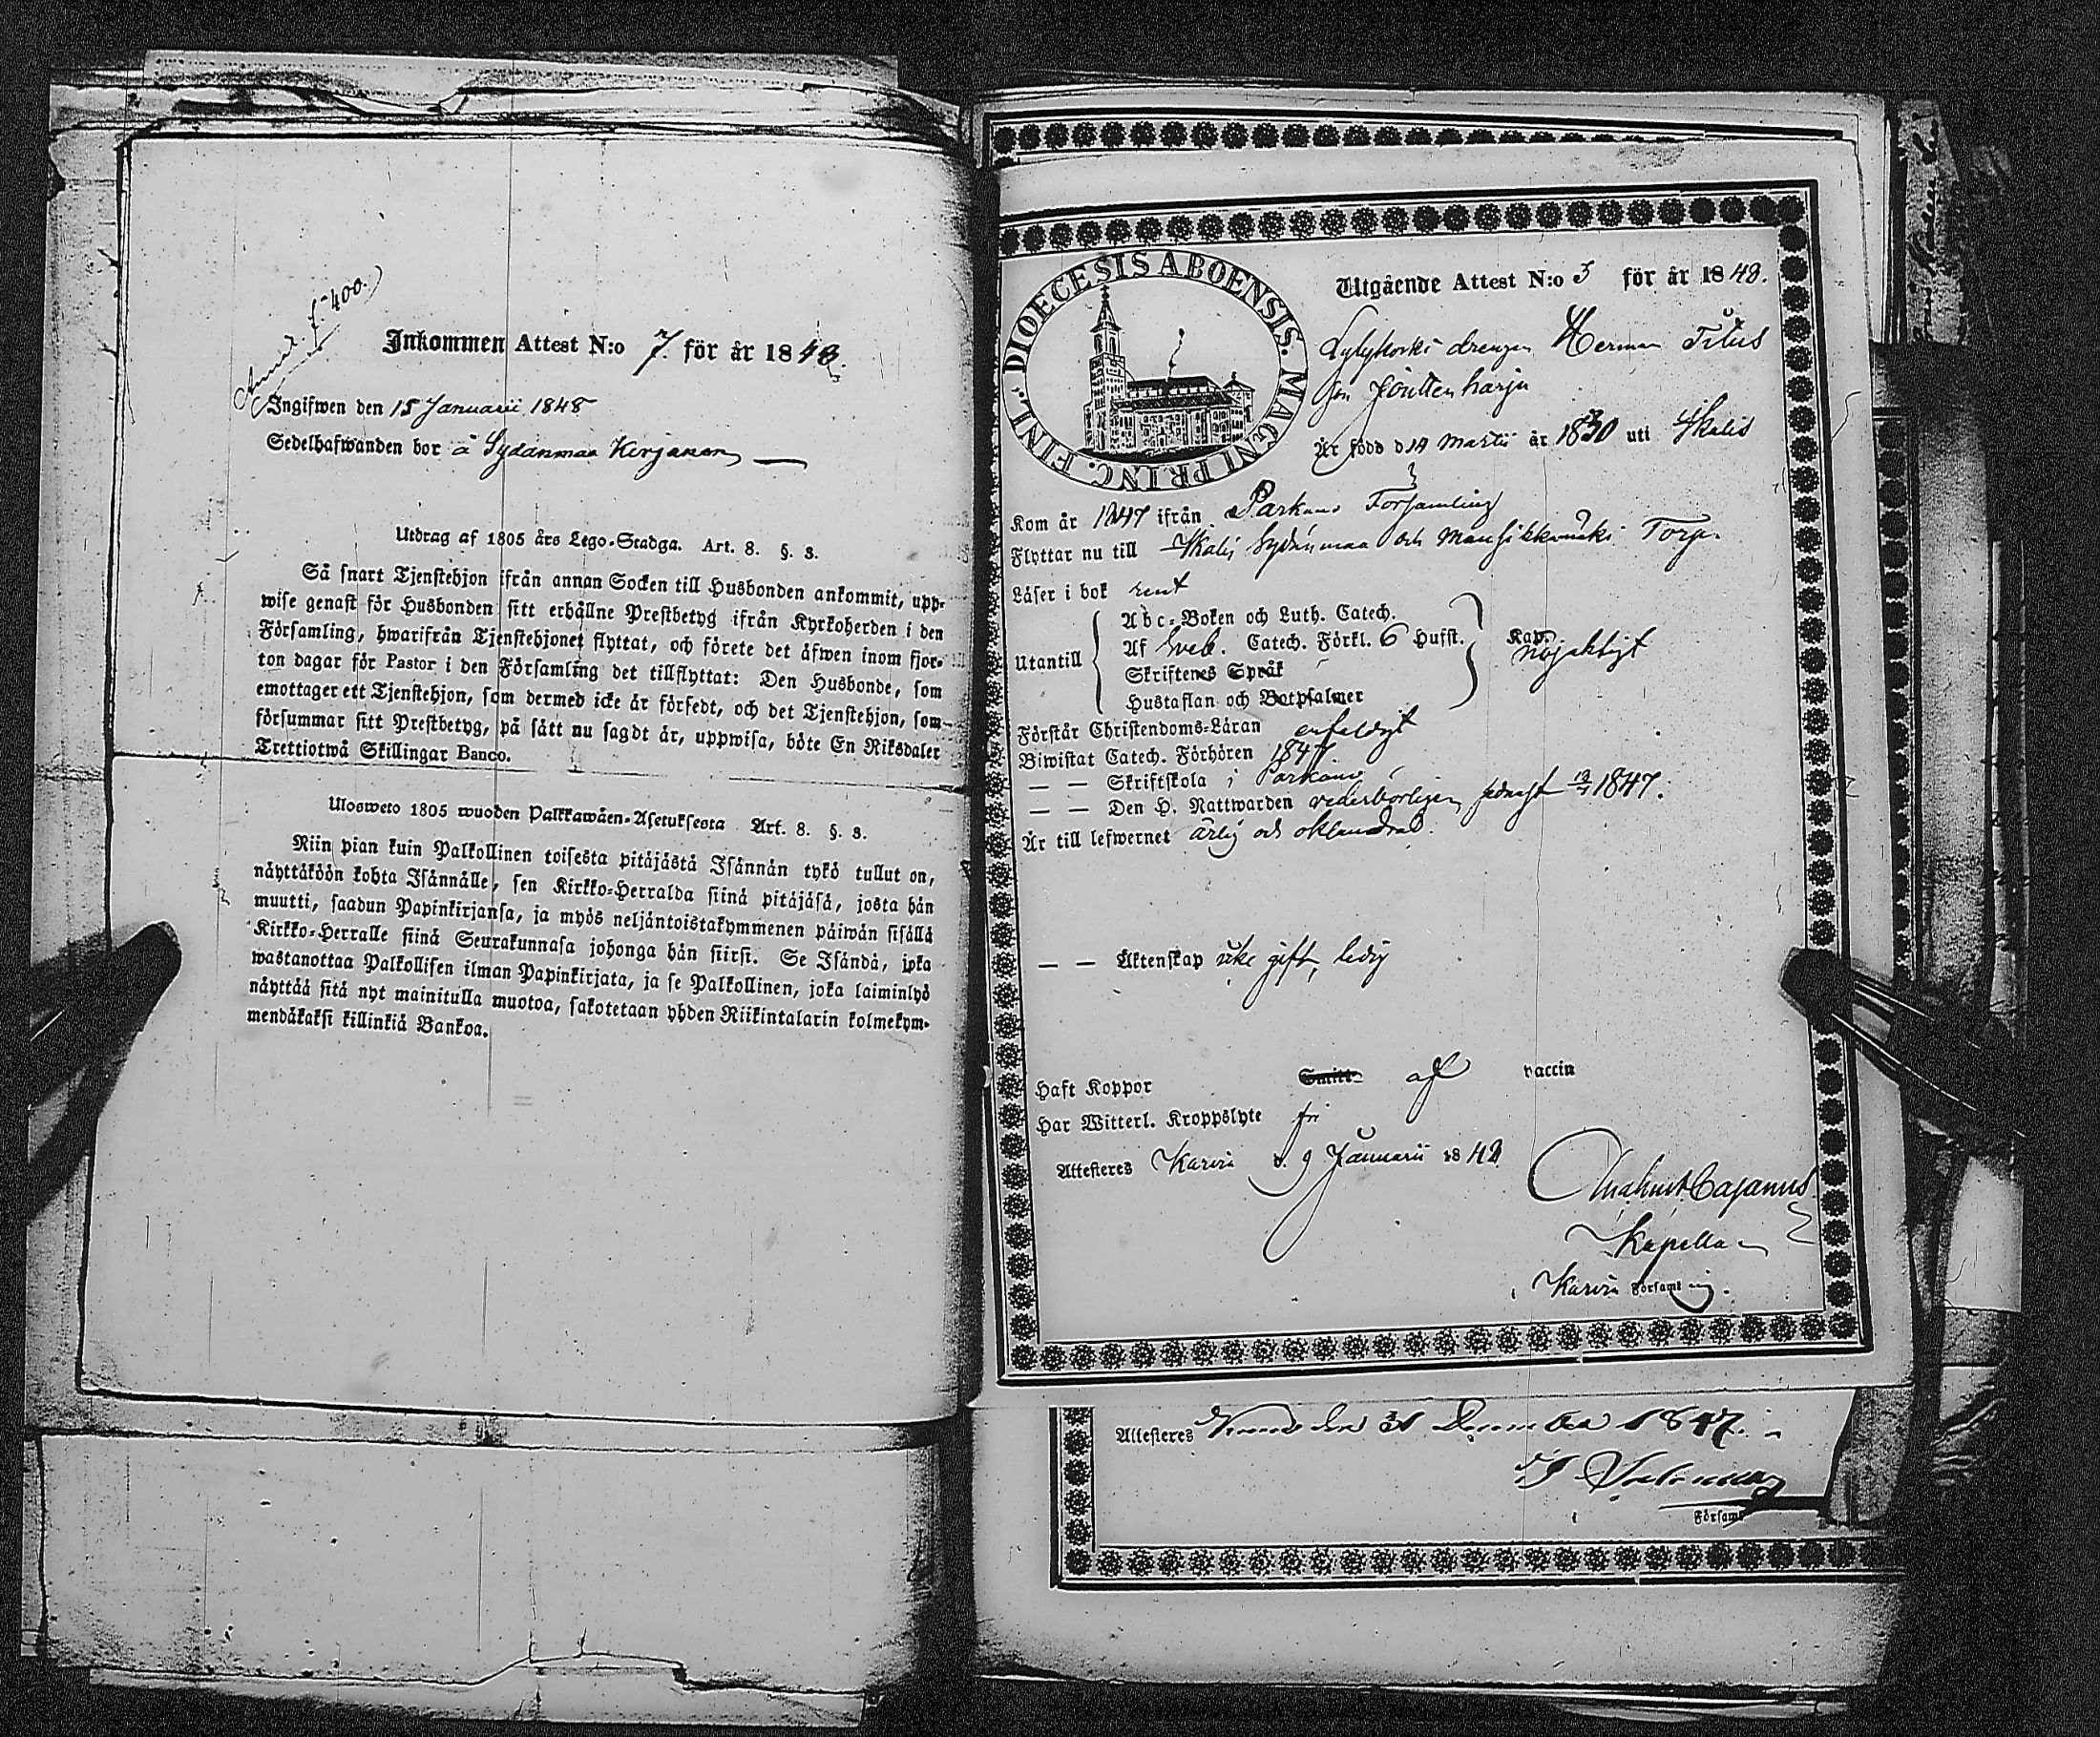 Annot. f. 400.
Inkommen Attest N:o 7. för år 1848.
Ingifwen den 15 Januarii 1848
Sedelhafwanden bor å Sydänmaa Kerjanen
Utdrag af 1805 års Lego-Stadga. Art. 8. §. 3.
Så snart Tjenstehjon ifrån annan Socken till Husbonden ankommit, upp-
wise genast för Husbonden sitt erhållne Prestbetyg ifrån Kyrkoherden i den
Församling, hwarifrån Tjenstehjonet flyttat, och förete det äfwen inom fjor-
ton dagar för Pastor i den Församling det tillflyttat: Den Husbonde, som
emottager ett Tjenstehjon, som dermed icke är förfedt, och det Tjenstehjon, som
försummar sitt Prestbetyg, på sätt nu sagdt är, uppwisa, böte En Riksdaler
Trettiotwå Skillingar Banco.
Ulosweto 1805 wuoden Palkkawäen-Asetuksesta Art. 8. §. 3.
Niin pian kuin Palkollinen toisesta pitäjästä Isännän tykö tullut on,
näyttäköön kohta Isännälle, sen Kirkko-Herralda siinä pitäjäsä, josta hän
muutti, saadun Papinkirjansa, ja myös neljäntoistakymmenen päiwän sisällä
Kirkko-Herralle siinä Seurakunnasa johonga hän siirsi. Se Isändä, joka
wastanottaa Palkollisen ilman Papinkirjata, ja se Palkollinen, joka laiminlyö
näyttää sitä nyt mainitulla muotoa, sakotetaan yhden Riikintalarin kolmekym-
mendäkaksi killinkiä Bankoa.
DIOECESIS ABOENSIS. MAGNI PRINC. FINL.
Utgående Attest N:o 3 för år 1848.
Lylykoski drengen Herman Titus
son Jouttenharju
Är född d 14 Martii år 1830 uti Ikalis
Kom år 1847 ifrån Parkano Församling
Flyttar nu till Ikalis Sydänmaa och Mansikkamäki Torp.
Läser i bok rent
Utantill
Abc-Boken och Luth. Catech.
Af Sveb. Catech. Förkl. 6 Hufst. Kap.
nöjaktigt
Skriftenes Språk
Hustaflan och Botpsalmer
Förstår Christendoms-Läran enfaldigt
Biwistat Catech. Förhören 1847
— — Skriftskola i Parkano
— — Den H. Nattwarden vederbörligen senast 1847.
Är till lefwernet ärlig och oklandrad.
— — Äktenskap icke gift, ledig
Haft Koppor Smitt- af vaccin
Har Witterl. Kroppslyte fri
Attesteres Karvia d. 9 Januarii 1848
Cajanus
Kapellan
i Karvia Församling.
Attesteres den 31 December 1847.
i Församl